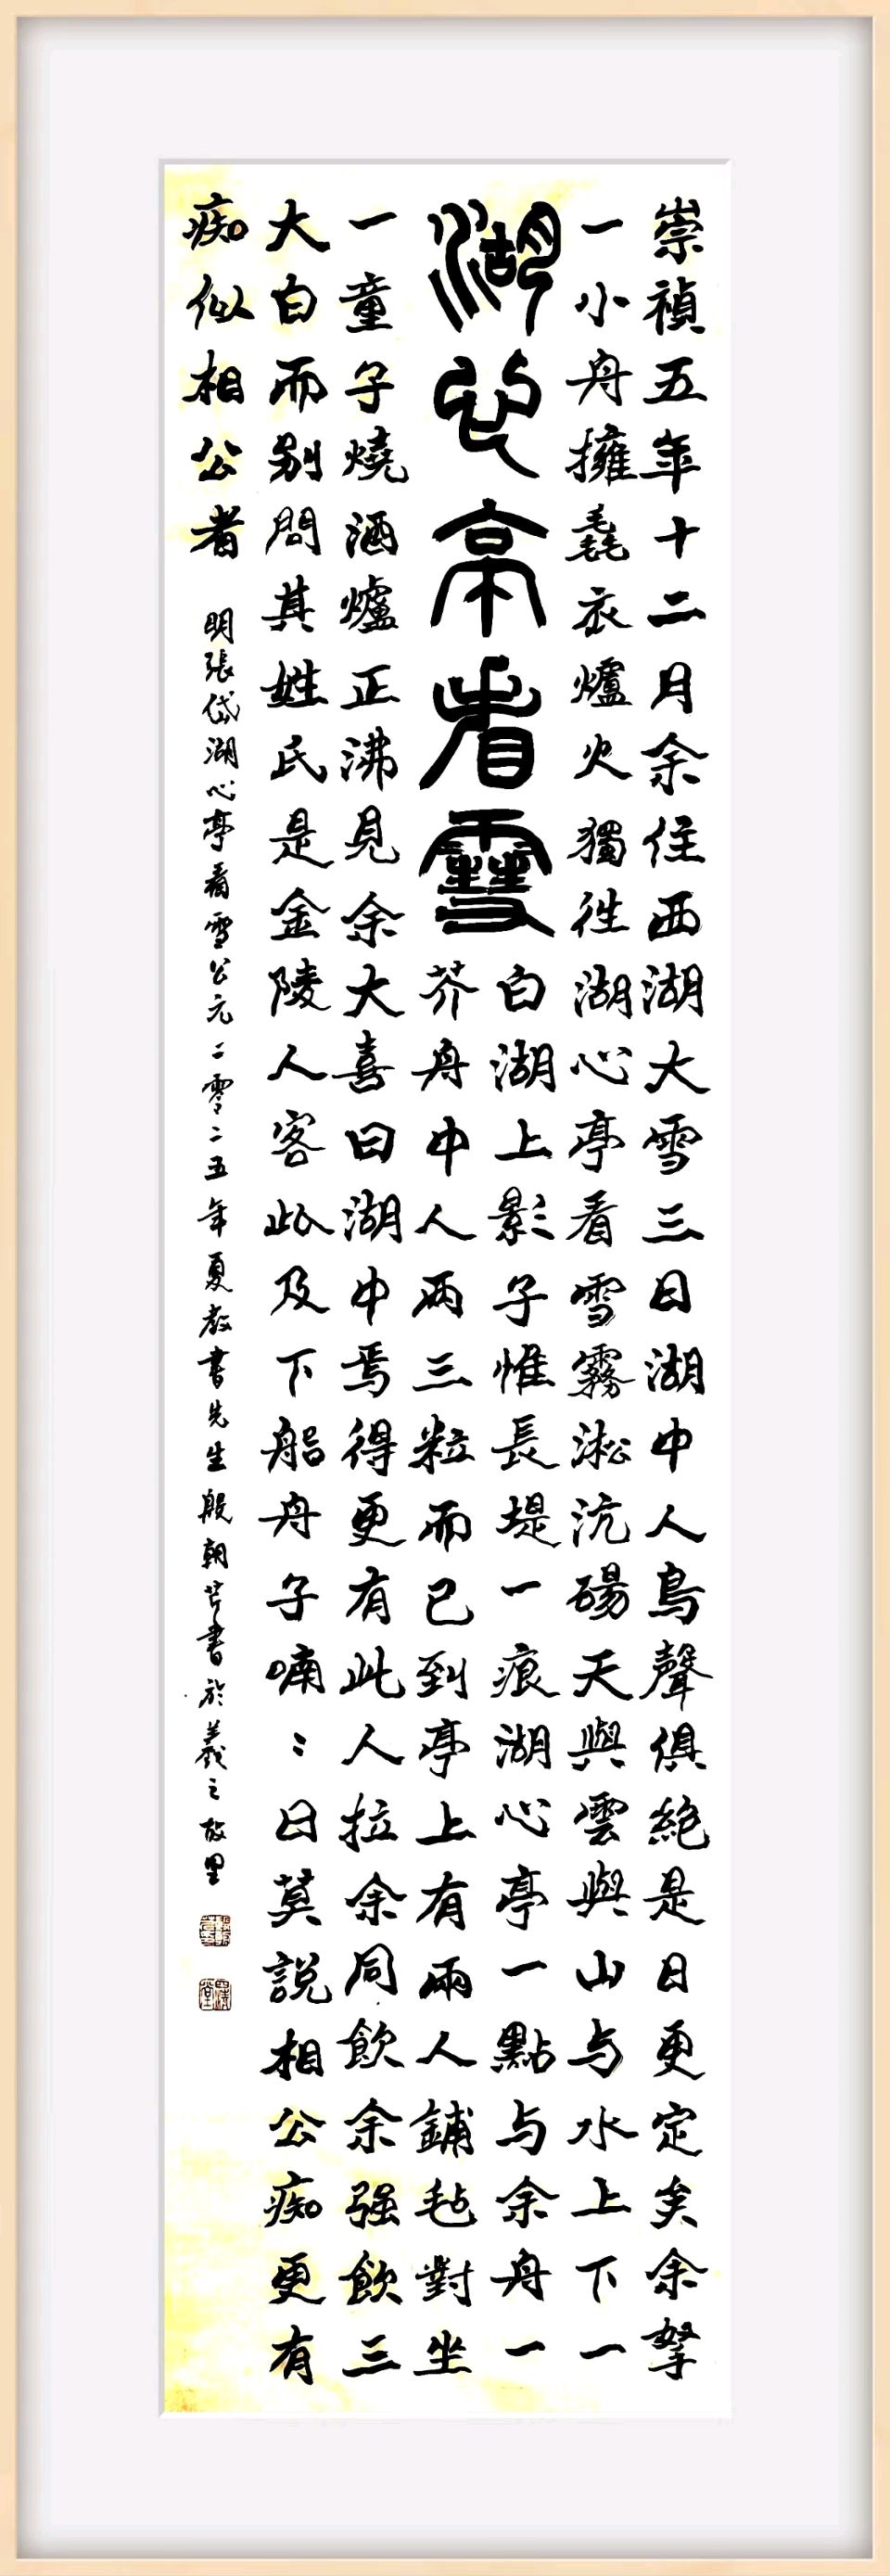 崇禎五年十二月余住西湖大雪三日湖中人鳥聲俱絶是日更定矣余拏
一小舟擁毳衣爐火獨往湖心亭看雪霧淞沆碭天與雲與山与水上下一
湖心亭看雪
白湖上影子惟長堤一痕湖心亭一點与余舟一
芥舟中人两三粒而已到亭上有兩人鋪毡對坐
一童子燒酒爐正沸見余大喜曰湖中焉得更有此人拉余同飲余强飲三
大白而别問其姓氏是金陵人客此及下船舟子喃〻曰莫説相公痴更有
痴似相公者
明張岱湖心亭看雪公元二零二五年夏教書先生殷朝書於羲之故里